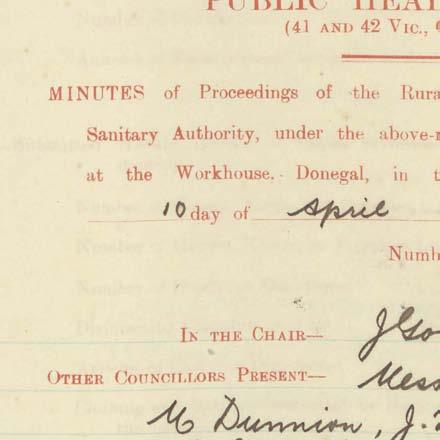 PUBLIC HEAL
(41 AND 42 VIC.,
MINUTES of Proceedings of the Rura
Sanitary Authority, under the above-
at the Workhouse, Donegal, in t
10 day of April
Numb
IN THE CHAIR—
OTHER COUNCILLORS PRESENT— Mess
M Dunnion, J.